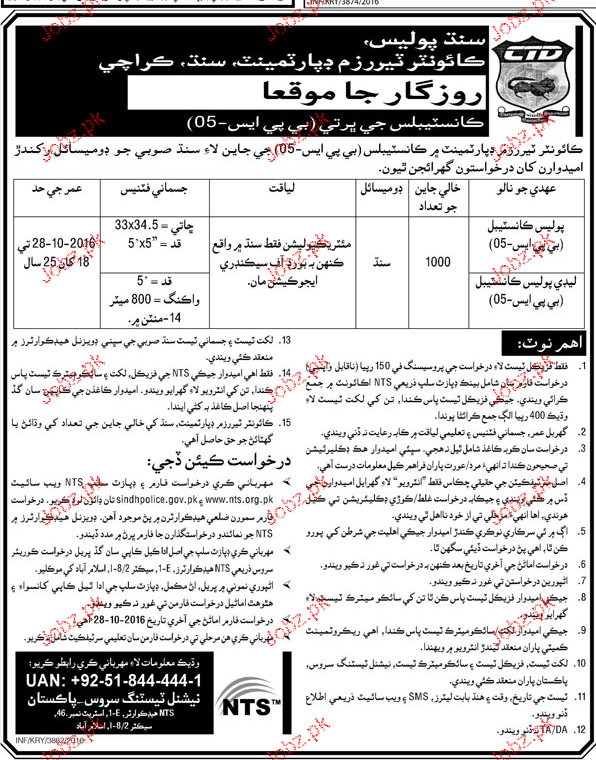 INF/KRY/3874/2016
سنڌ پوليس،
ڪائونٽر ٽيررزم ڊپارٽمينٽ، سنڌ، ڪراچي
روزگار جا موقعا
ڪانسٽيبلس جي ڀرتي (بي پي ايس-05)
CTD
Sindh
ڪائونٽر ٽيررزم ڊپارٽمينٽ ۾ ڪانسٽيبلس (بي پي ايس-05) جي جاين لاءِ سنڌ صوبي جو ڊوميسائل رکندڙ
اميدوارن کان درخواستون گهرائجن ٿيون.
عهدي جو نالو
خالي جاين جو تعداد
ڊوميسائل
لياقت
جسماني فٽنيس
عمر جي حد
پوليس ڪانسٽيبل
(بي پي ايس-05)
ليڊي پوليس ڪانسٽيبل
(بي پي ايس-05)
1000
سنڌ
مئٽريڪوليشن فقط سنڌ ۾ واقع
ڪنهن به بورڊ آف سيڪنڊري
ايجوڪيشن مان.
ڇاتي = 33x34.5
قد = 5'x5"
قد = 5'
واڪنگ = 800 ميٽر
14-منٽن ۾.
28-10-2016 تي
18 کان 25 سال
اهم نوٽ:
1. فقط فزيڪل ٽيسٽ لاءِ درخواست جي پروسيسنگ في 150 رپيا (ناقابل واپسي)
درخواست فارم سان شامل بينڪ ڊپازٽ سلپ ذريعي NTS اڪائونٽ ۾ جمع
ڪرائي ويندي. جيڪي فزيڪل ٽيسٽ پاس ڪندا، تن کي لکت ٽيسٽ لاءِ
وڌيڪ 400 رپيا الڳ جمع ڪرائڻا پوندا.
2. گهربل عمر، جسماني فٽنيس ۽ تعليمي لياقت ۾ ڪابه رعايت نه ڏني ويندي.
3. درخواست سان ڪوبه ڪاغذ شامل ٿيل نه هجي. سڀئي اميدوار هڪ ڊڪليريشن
تي صحيحون ڪندا ته انهيءَ مرد/عورت پاران فراهم ڪيل معلومات درست آهي.
4. اصل سرٽيفڪيٽن جي حقيقي چڪاس فقط "انٽرويو" لاءِ گهرايل اميدوارن جي
ڏس ۾ ڪئي ويندي ۽ جيڪابه درخواست غلط/ڪوڙي ڊڪليئريشن تي ٻڌل
هوندي، اها انهيءَ مرحلي تي از خود نااهل ٿي ويندي.
5. اڳ ۾ ئي سرڪاري نوڪري ڪندڙ اميدوار جيڪي اهليت جي شرطن کي پورو
ڪن ٿا، اهي پڻ درخواست ڏيئي سگهن ٿا.
6. درخواست اماڻڻ جي آخري تاريخ بعد ڪنهن به درخواست تي غور نه ڪيو ويندو.
7. اڻپورين درخواستن تي غور نه ڪيو ويندو.
8. جيڪي اميدوار فزيڪل ٽيسٽ پاس ڪن ٿا تن کي سائڪو ميٽرڪ ٽيسٽ لاءِ
گهرايو ويندو.
9. جيڪي اميدوار لکت/سائڪوميٽرڪ ٽيسٽ پاس ڪندا، اهي ريڪروٽمينٽ
ڪميٽي پاران منعقد ٿيندڙ انٽرويو ۾ ويهندا.
10. لکت ٽيسٽ، فزيڪل ٽيسٽ ۽ سائڪوميٽرڪ ٽيسٽ، نيشنل ٽيسٽنگ سروس،
پاڪستان پاران منعقد ڪئي ويندي.
11. ٽيسٽ جي تاريخ، وقت ۽ هنڌ بابت ليٽرز، SMS ۽ ويب سائيٽ ذريعي اطلاع
ڏنو ويندو.
12. TA/DA نه ڏنو ويندو.
13. لکت ٽيسٽ ۽ جسماني ٽيسٽ سنڌ صوبي جي سڀني ڊويزنل هيڊڪوارٽرز ۾
منعقد ڪئي ويندي.
14. فقط اهي اميدوار جيڪي NTS جي فزيڪل، لکت ۽ سائڪوميٽرڪ ٽيسٽ پاس
ڪندا، تن کي انٽرويو لاءِ گهرايو ويندو. اميدوار ڪاغذن جي ڪاپين سان گڏ
پنهنجا اصل ڪاغذ به کڻي ايندا.
15. ڪائونٽر ٽيررزم ڊپارٽمينٽ، سنڌ کي خالي جاين جي تعداد کي وڌائڻ يا
گهٽائڻ جو حق حاصل آهي.
درخواست ڪيئن ڏجي:
مهرباني ڪري درخواست فارم ۽ ڊپازٽ سلپ NTS ويب سائيٽ
www.nts.org.pk ۽ sindhpolice.gov.pk تان ڊائون لوڊ ڪريو. درخواست
فارم سمورن ضلعي هيڊڪوارٽرز ۾ پڻ موجود آهن. ڊويزنل هيڊڪوارٽرز ۾
NTS جو نمائندو درخواستگذارن جا فارم ڀرڻ ۾ مدد ڏيندو.
مهرباني ڪري ڊپازٽ سلپ جي اصل ادا ڪيل ڪاپي سان گڏ ڀريل درخواست ڪوريئر
سروس ذريعي NTS هيڊڪوارٽرز، 1-E، سيڪٽر I-8/2، اسلام آباد کي موڪليو.
اڻپوري نموني ۾ ڀريل، اڻ مڪمل، ڊپازٽ سلپ جي ادا ٿيل ڪاپي کانسواءِ ۽
هٿوهٿ اماڻيل درخواست فارمن تي غور نه ڪيو ويندو.
درخواست فارم اماڻڻ جي آخري تاريخ 28-10-2016 آهي.
مهرباني ڪري هن مرحلي تي درخواست فارمن سان تعليمي سرٽيفڪيٽ شامل نه ڪريو.
وڌيڪ معلومات لاءِ مهرباني ڪري رابطو ڪريو:
UAN: +92-51-844-444-1
نيشنل ٽيسٽنگ سروس-پاڪستان
NTS هيڊڪوارٽر، 1-E، اسٽريٽ نمبر 46،
سيڪٽر I-8/2، اسلام آباد
NTS™
INF/KRY/3882/2016
Jobz.pk